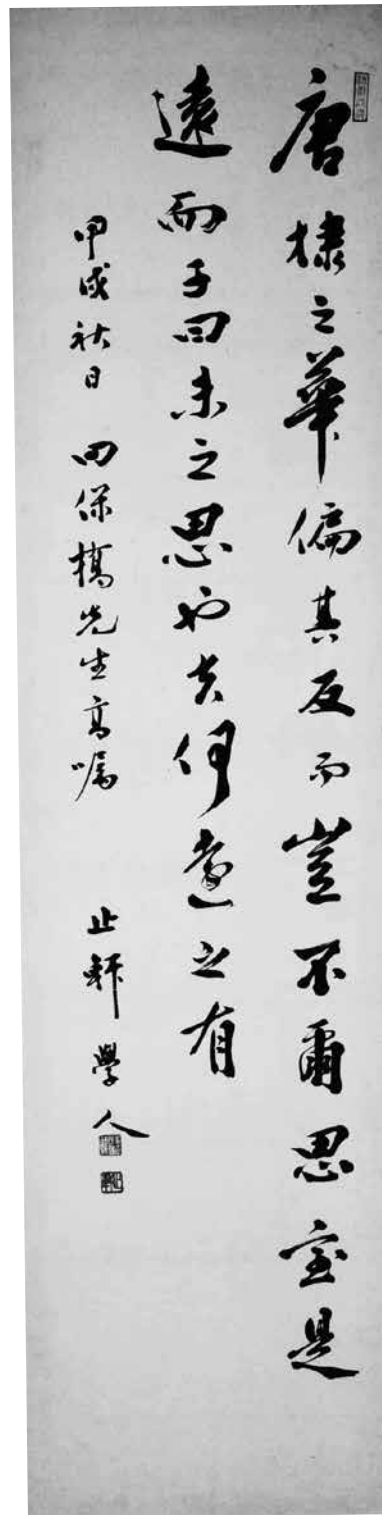 唐棣之華偏其反而豈不爾思室是
遠而子曰未之思也夫何遠之有
甲戌秋日 田保橋先生高嘱 止軒學人